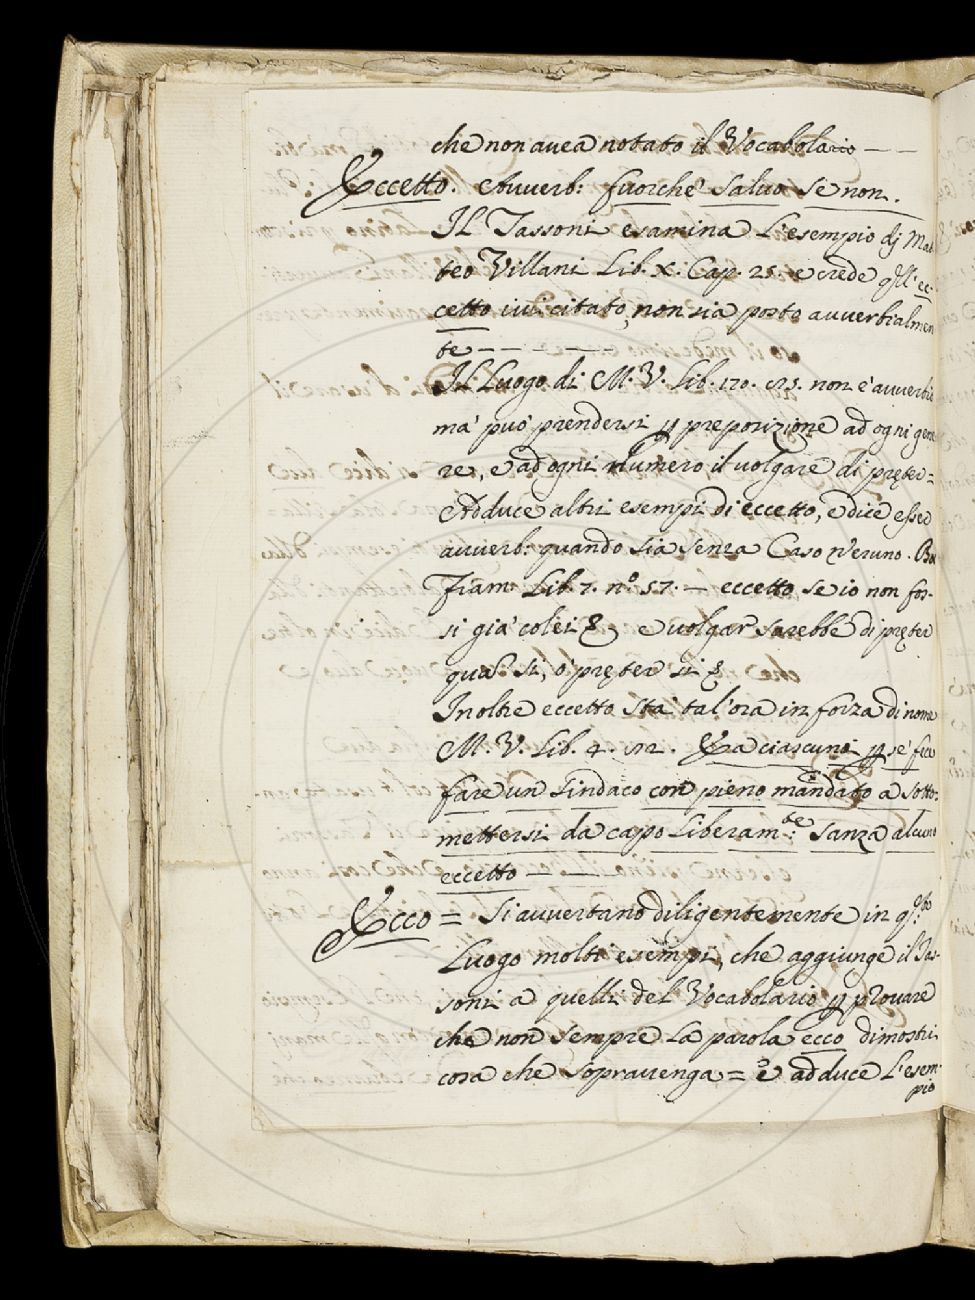 che non avea notato il Vocabolario — —
Eccetto. Avverb: fuorchè salvo se non.
Il Tassoni esamina l'esempio dj Mat
teo Villani Lib. X. Cap. 25. e crede qll' ec-
cetto ivi citato, non sia posto avverbialmen
te — — — — —
Il Luogo di M. V. Lib. 170. 25. non è avverbio
ma può prendersi p preposizione ad ogni gene
re, e ad ogni numero il volgare di pręter=
Adduce altri esempi di eccetto, e dice esser
avverb: quando sia senza Caso veruno. Boc
Fiam. Lib. 7. n.º 57. — eccetto se io non fos-
si già colei & e volgar sarebbe di pręter
quā si, ò pręter si &
Inoltre eccetto sta tal'ora in forza di nome
M. V. Lib. 4. 12. Era ciascuni p se fece
fare un Sindaco con pieno mandato a sotto:
mettersi da capo Liberam:te sanza alcuno
eccetto — —
Ecco = Si avvertano diligentemente in q.sto
Luogo molti esempi, che aggiunge il Tas-
soni a quelli del Vocabolario p provare
che non sempre la parola ecco dimostri
cosa che sopravenga = e adduce l'esem-
pio